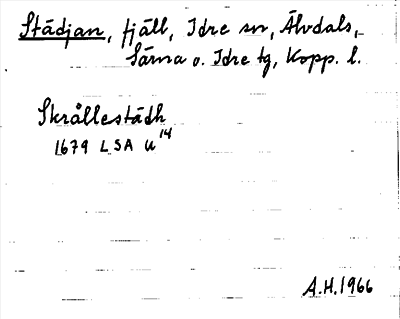 Städjan, fjäll, Idre sn, Älvdals,-
Särna o. Idre tg, Kopp. l.
Skrållestädh
1679 LSA U 14
A.H. 1966